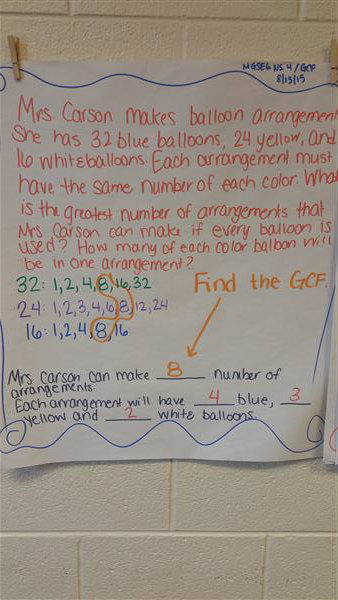 MGSE6.NS.4/GCF
8/13/15
Mrs. Carson makes balloon arrangement
She has 32 blue balloons, 24 yellow, and
16 white balloons. Each arrangement must
have the same number of each color. What
is the greatest number of arrangements that
Mrs Carson can make if every balloon is
used? How many of each color balloon will
be in one arrangement?
32: 1, 2, 4, 8, 16, 32
Find the GCF.
24: 1, 2, 3, 4, 6, 8, 12, 24
16: 1, 2, 4, 8, 16
Mrs Carson can make 8 number of
arrangements.
Each arrangement will have 4 blue, 3
yellow and 2 white balloons.